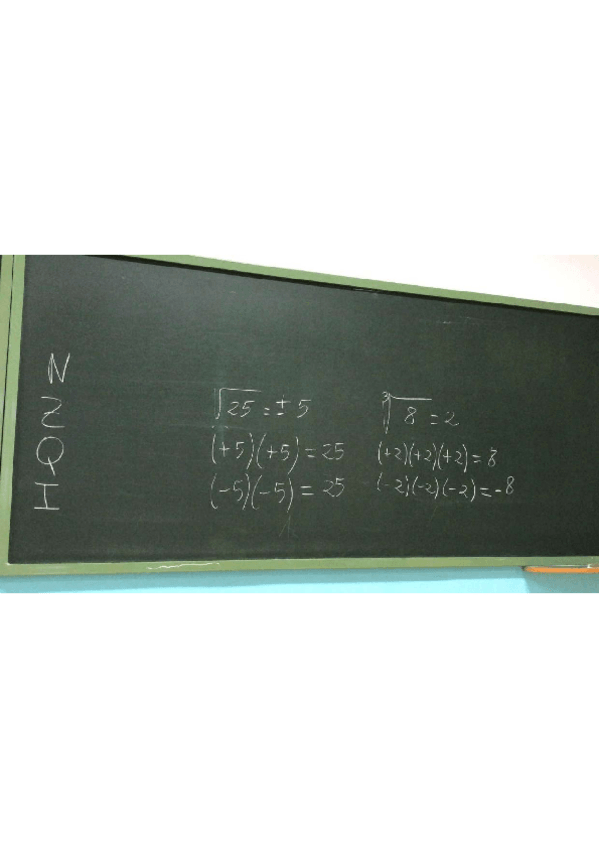 N
Z
Q
I
√25 = ± 5
(+5)(+5) = 25
(-5)(-5) = 25
∛8 = 2
(+2)(+2)(+2) = 8
(-2)(-2)(-2) = -8